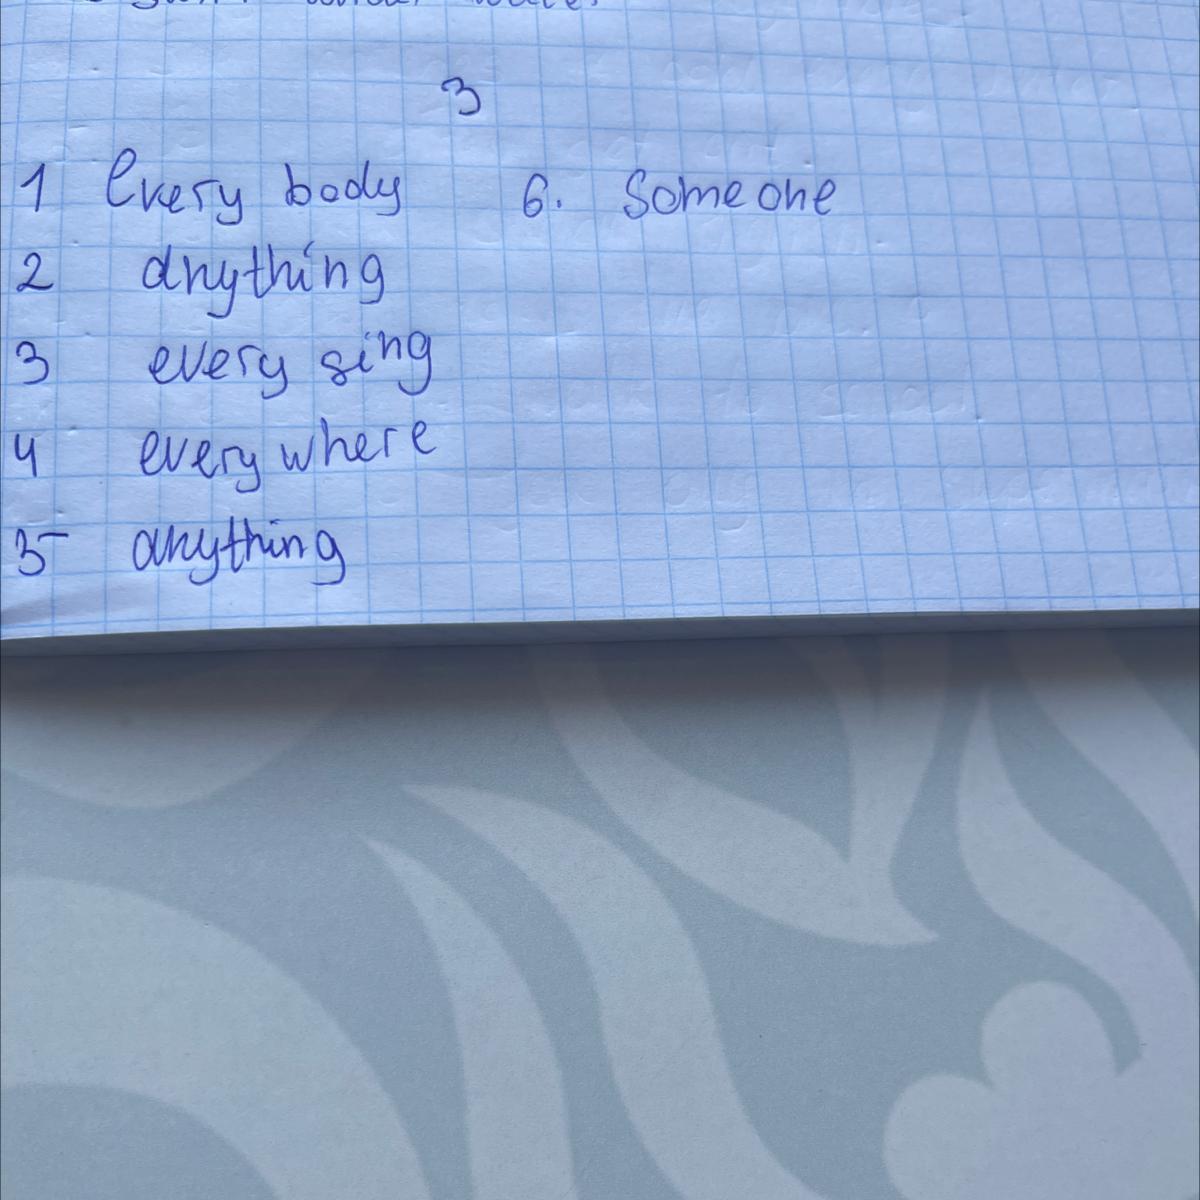 3
1 Every body 6. Someone
2 anything
3 every sing
4 every where
5 anything